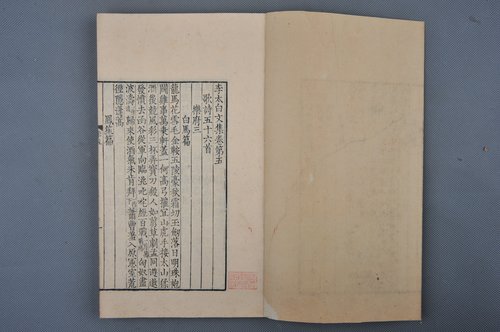 李太白文集卷第五
歌詩五十六首
樂府三
白馬篇
龍馬花雪毛金鞍五陵豪秋霜切玉劒落日明珠袍
鬭雞事萬乗軒蓋一何高弓摧宜山虎手接太山猱
酒後競風彩三杯弄寳刀殺人如剪草劇孟同遊遨
發憤去函谷從軍向臨洮叱咤經百戰匈奴盡
波濤歸來使酒氣未肯拜蕭曹羞入原憲室荒
徑隱蓬蒿
鳳笙篇